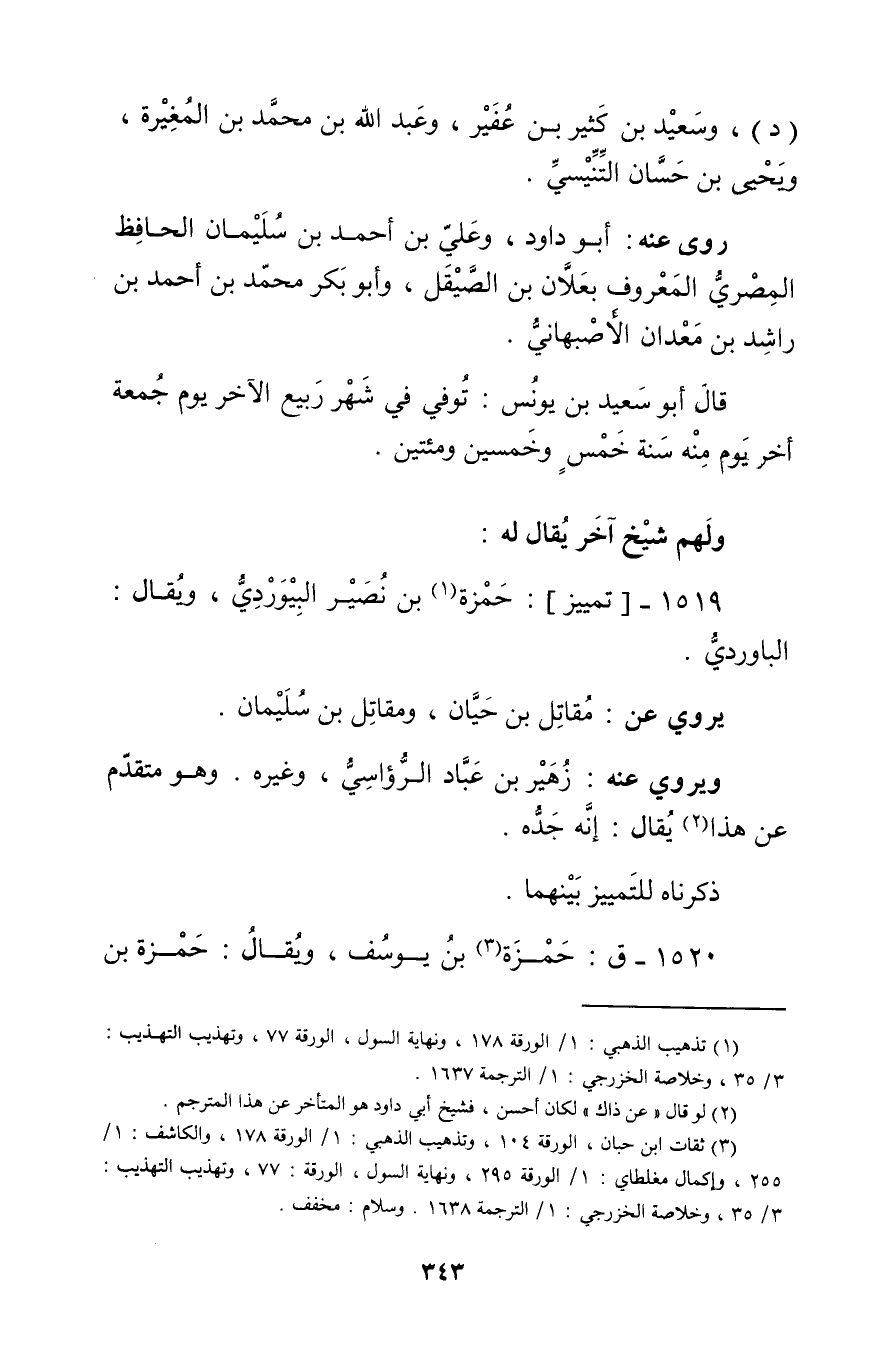 ( د ) ، وسَعيْد بن كَثير بـن عُفَيْر ، وعَبد الله بن محمَّد بن المُغِيْرة ،
ويَحْيى بن حَسَّان التِّنِّيْسيِّ .
روى عنه : أبـو داود ، وعَليّ بن أحمـد بن سُلَيْمـان الحـافِظ
المِصْريُّ المَعْروف بعَلَّان بن الصَّيْقَل ، وأبو بَكر محمّد بن أحمد بن
راشِد بن مَعْدان الأَصْبهانيُّ .
قالَ أبو سَعيد بن يونُس : تُوفي في شَهْر رَبيع الآخر يوم جُمعة
أخر يَوم مِنْه سَنة خَمْسٍ وخَمسين ومئتين .
ولَهم شيْخ آخَر يُقال له :
١٥١٩ ـ [ تمييز ] : حَمْزة(١) بن نُصَيْـر البِيْوَرْدِيُّ ، ويُقـال :
الباورديُّ .
يروي عن : مُقاتِل بن حَيَّان ، ومقاتِل بن سُلَيْمان .
ويروي عنه : زُهَيْر بن عَبَّاد الـرُّؤاسِيُّ ، وغيره . وهـو متقدّم
عن هذا(٢) يُقال : إنَّه جَدُّه .
ذكرناه للتَمييز بَيْنهما .
١٥٢٠ ـ ق : حَمْـزَة(٣) بنُ يـوسُف ، ويُقـالُ : حَمْـزة بن
(١) تذهيب الذهبي : ١/ الورقة ١٧٨ ، ونهاية السول ، الورقة ٧٧ ، وتهذيب التهـذيب :
٣/ ٣٥ ، وخلاصة الخزرجي : ١/ الترجمة ١٦٣٧ .
(٢) لو قال « عن ذاك » لكان أحسن ، فشيخ أبي داود هو المتأخر عن هذا المترجم .
(٣) ثقات ابن حبان ، الورقة ١٠٤ ، وتذهيب الذهبي : ١/ الورقة ١٧٨ ، والكاشف : ١/
٢٥٥ ، وإكمال مغلطاي : ١/ الورقة ٢٩٥ ، ونهاية السول ، الورقة : ٧٧ ، وتهذيب التهذيب :
٣/ ٣٥ ، وخلاصة الخزرجي : ١/ الترجمة ١٦٣٨ . وسلام : مخفف .
٣٤٣